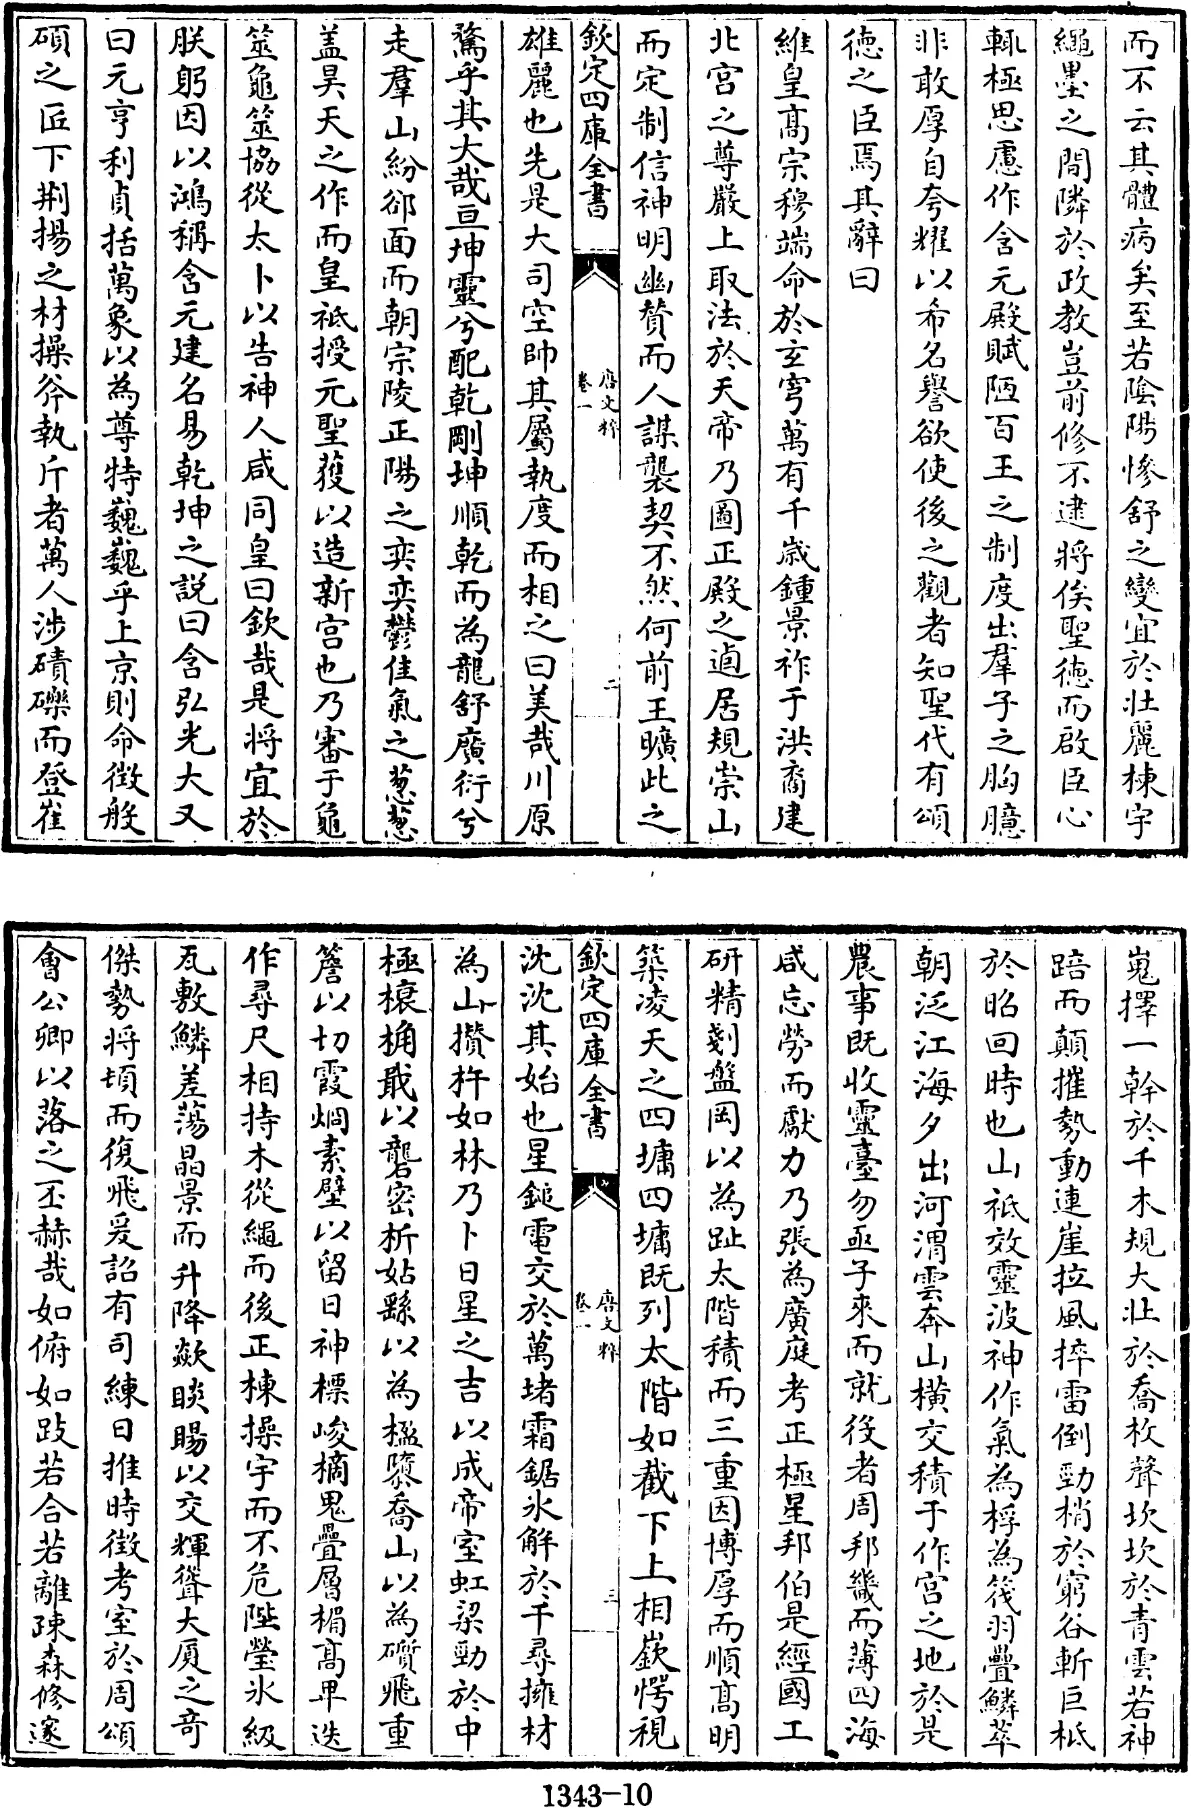 而不云其體病矣至若隂陽慘舒之變宜於壯麗棟宇
繩墨之間隣於政教豈前修不逮將俟聖徳而啟臣心
輒極思慮作含元殿賦陋百王之制度出羣子之胸臆
非敢厚自夸耀以希名譽欲使後之觀者知聖代有頌
徳之臣焉其辭曰
維皇髙宗穆端命於𤣥穹萬有千嵗鍾景祚于洪裔建
北宫之尊嚴上取法於天帝乃圖正殿之逌居規崇山
而定制信神明幽賛而人謀襲契不然何前王曠此之
欽定四庫全書
唐文粹
卷一
二
雄麗也先是大司空帥其屬執度而相之曰美哉川原
騖乎其大哉亘坤靈兮配乾剛坤順乾而為龍舒廣衍兮
走羣山紛郤面而朝宗陵正陽之奕奕鬱佳氣之葱葱
盖昊天之作而皇祗授元聖䕶以造新宫也乃審于龜
筮龜筮協從太卜以告神人咸同皇曰欽哉是將宜於
朕躬因以鴻稱含元建名易乾坤之説曰含弘光大又
曰元亨利貞括萬象以為尊特巍巍乎上京則命徴般
碩之匠下荆揚之材操斧執斤者萬人渉磧礫而登崔
嵬擇一幹於千木規大壯於喬枚聲坎坎於青雲若神
踣而顛摧勢動連崖拉風捽雷倒勁梢於窮谷斬巨柢
於昭回時也山祗效靈波神作氣為桴為筏羽疊鱗萃
朝泛江海夕出河渭雲奔山横交積于作宫之地於是
農事既收靈臺勿亟子來而就役者周邦畿而薄四海
咸忘勞而獻力乃張為廣庭考正極星邦伯是經國工
研精剗盤岡以為趾太階積而三重因博厚而順髙明
築凌天之四墉四墉既列太階如截下上相嶔愕視
欽定四庫全書
唐文粹
卷一
三
沈沈其始也星鎚電交於萬堵霜鋸氷解於千尋擁材
為山攢杵如林乃卜日星之吉以成帝室虹梁勁於中
極榱桷戢以礱密析姑繇以為楹隳喬山以為礩飛重
簷以切霞烱素壁以留日神標峻樀鬼疊層楣髙卑迭
作尋尺相持木從繩而後正棟操宇而不危陛瑩氷級
瓦敷鱗差蕩晶景而升降歘睒賜以交輝聳大厦之竒
傑勢將頃而復飛爰詔有司練日推時徴考室於周頌
會公卿以落之丕赫哉如俯如跂若合若離踈森修邃
1343-10